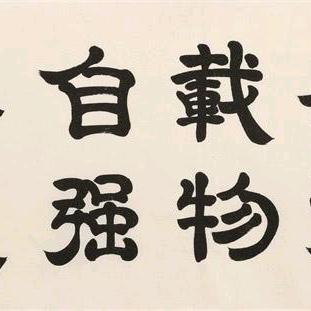 載物
自强